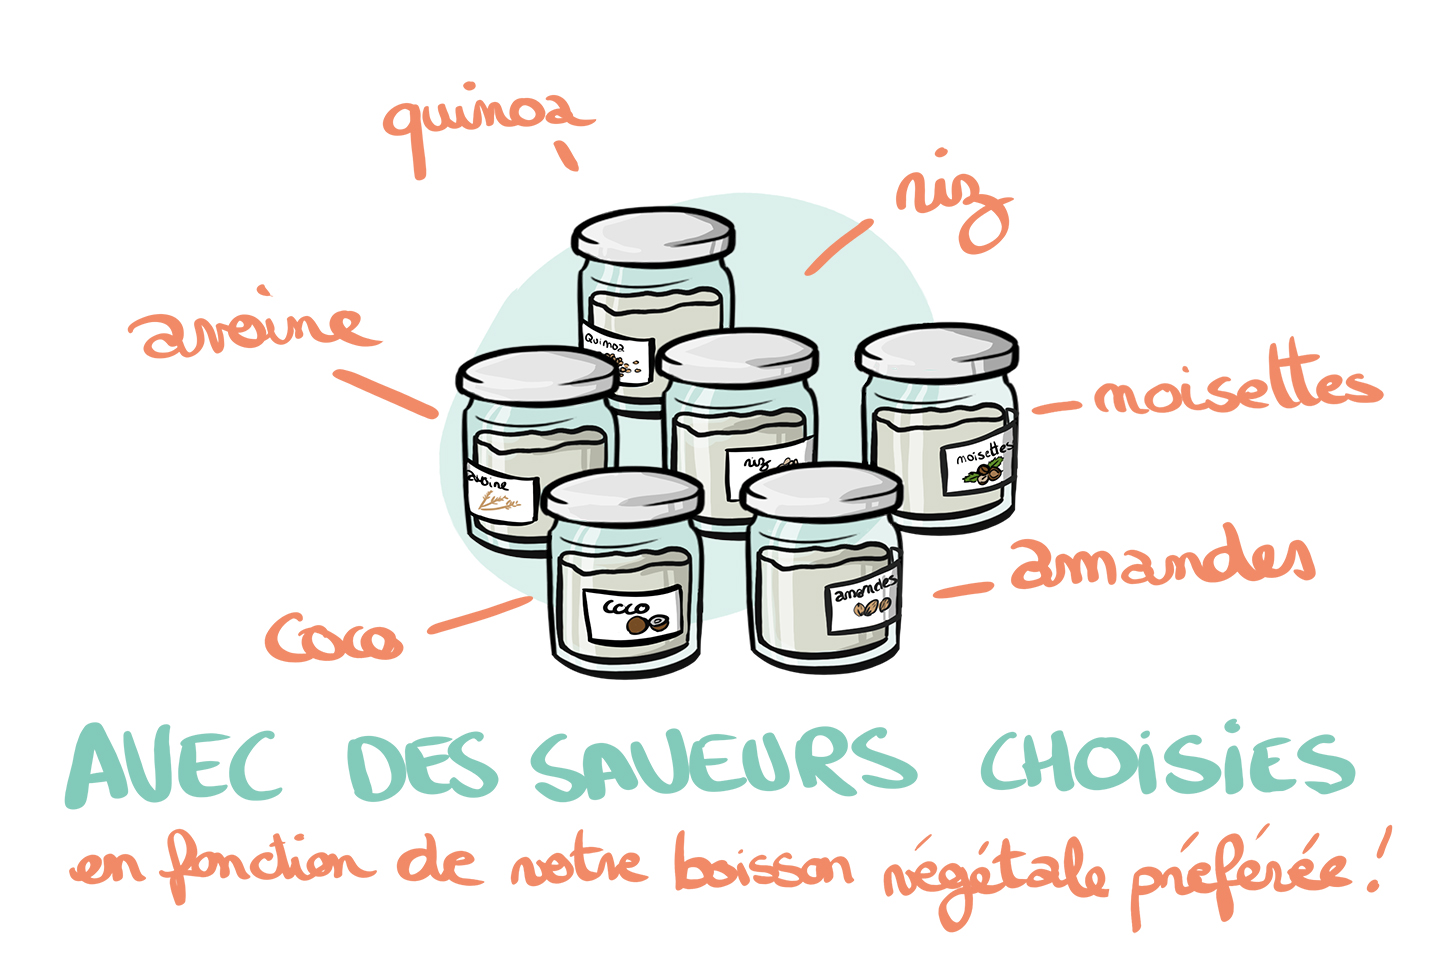 quinoa
riz
avoine
noisettes
amandes
coco
Quinoa
avoine
riz
noisettes
coco
amandes
AVEC DES SAVEURS CHOISIES
en fonction de votre boisson végétale préférée !